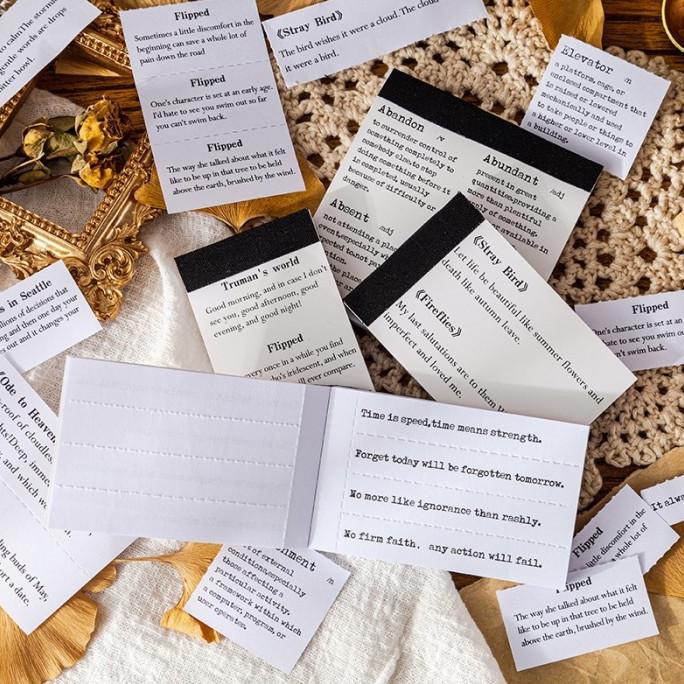 to calm The stormy
gentle words are drops
bitter bowl.
Flipped
Sometimes a little discomfort in the
beginning can save a whole lot of
pain down the road
Flipped
One's character is set at an early age.
I'd hate to see you swim out so far
you can't swim back.
Flipped
The way she talked about what it felt
like to be up in that tree to be held
above the earth, brushed by the wind.
《Stray Bird》
The bird wishes it were a cloud. The cloud
it were a bird.
Elevator /n
a platform, cage, or
enclosed compartment that
is raised or lowered
mechanically and used
to take people or things to
a higher or lower level in
a building.
Abandon /v
to surrender control of
something completely to
somebody else, to stop
doing something before it
is completed, usually
because of difficulty or
danger.
Abundant /adj
present in great
quantities, providing a
more than plentiful
or available in
Absent /adj
not attending a place
event, especially wh
expected to
the place
Truman's world
Good morning, and in case I don't
see you, good afternoon, good
evening, and good night!
Flipped
every once in a while you find
who's iridescent, and when
will ever compare.
《Stray Bird》
Let life be beautiful like summer flowers and
death like autumn leave.
《Fireflies》
My last salutations are to them
imperfect and loved me.
Flipped
One's character is set at an
I'd hate to see you swim ou
can't swim back.
s in Seattle
illions of decisions that
ng and then one day your
out and it changes your
《Ode to Heaven
roof of cloudless
ghts! Deep immea
and which we
ling buds of May,
ort a date.
Time is speed,time means strength.
Forget today will be forgotten tomorrow.
No more like ignorance than rashly.
No firm faith, any action will fail.
nment /n
of external
conditions, especially
those affecting a
particular activity.
a framework within which
a computer, program, or
user operates.
Flipped
little discomfort in the
whole lot of
It alwa
Flipped
The way she talked about what it felt
like to be up in that tree to be held
above the earth, brushed by the wind.